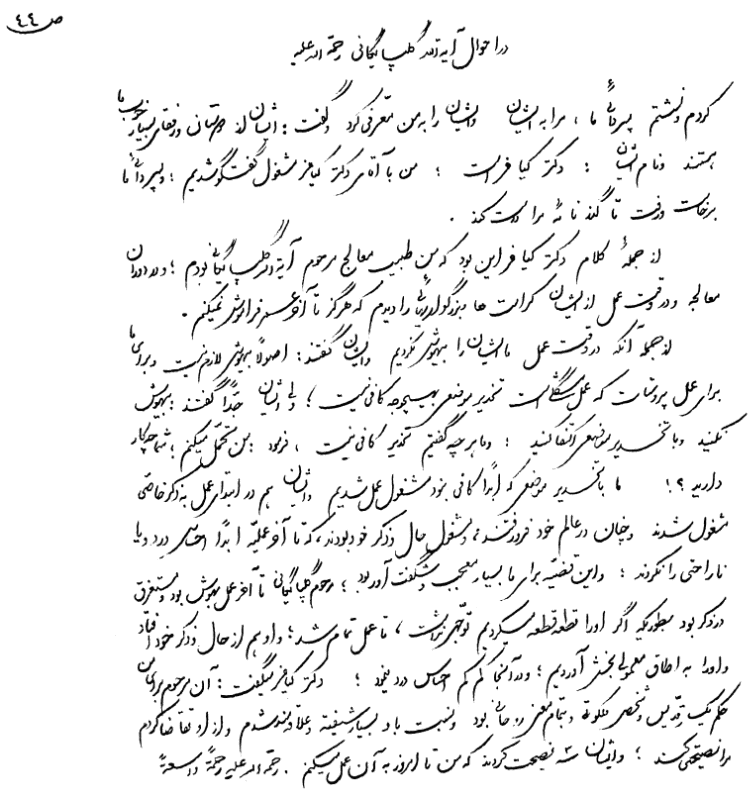 ص ٤٤
در احوال آیة الله گلپایگانی رحمة الله علیه
کردم و نشستم پسردائی ما ، مرا به ایشان و ایشان را به من معرفی کرد و گفت : ایشان از دوستان و رفقای بسیار خوب ما
هستند و نام ایشان : دکتر کیافر است ؛ من با آقای دکتر کیافر مشغول گفتگو شدیم ؛ و پسردائی ما
برخاست و رفت تا گذرنامهٔ مرا درست کند .
از جملهٔ کلام دکتر کیافر این بود که من طبیب معالج مرحوم آیة الله گلپایگانی بودم ؛ و در دوران
معالجه و در وقت عمل از ایشان کرامت‌ها و بزرگواریهائی را دیدم که هرگز تا آخر عمر فراموش نمیکنم .
از جمله آنکه در وقت عمل ما ایشان را بیهوش نکردیم و ایشان گفتند : اصولاً بیهوشی لازم نیست و برای ما
برای عمل پروستات که عمل سنگینی است تخدیر موضعی بهیچوجه کافی نیست ؛ ولی ایشان جدّاً گفتند : بیهوش
نکنید و با تخدیر موضعی اکتفا کنید ؛ و ما هر چه گفتیم تخدیر کافی نیست ، فرمود : من تحمّل میکنم ؛ شما چکار
دارید ؟! ما با تخدیر موضعی که ابداً کافی نبود مشغول عمل شدیم و ایشان هم در ابتدای عمل به ذکر خاصّی
مشغول شدند و چنان در عالم خود فرو رفتند و مشغول حال و ذکر خود بودند ، که تا آخر عملیّه ابداً احساس درد و یا
ناراحتی را نکردند ؛ و این قضیّه برای ما بسیار معجب و شگفت آور بود ؛ مرحوم گلپایگانی تا آخر عمل بهوش بود و مستغرق
در ذکر بود بطوریکه اگر او را قطعه قطعه میکردیم توجّهی نداشت ، تا عمل تمام شد ؛ و او هم از حال و ذکر خود افتاد
و او را به اطاق معمولی بخش آوردیم ؛ و در آنجا کم کم احساس درد نمود ؛ دکتر کیافر میگفت : آن مرحوم برای من
حکم یک قدّیس و شخص ملکوتی و بتمام معنی روحانی بود و نسبت باو بسیار شیفته و علاقمند شدم و از او تقاضا کردم
مرا نصیحتی کند ؛ و ایشان سه نصیحت کردند که من تا امروز به آن عمل میکنم . رحمة الله علیه رحمةً واسعةً